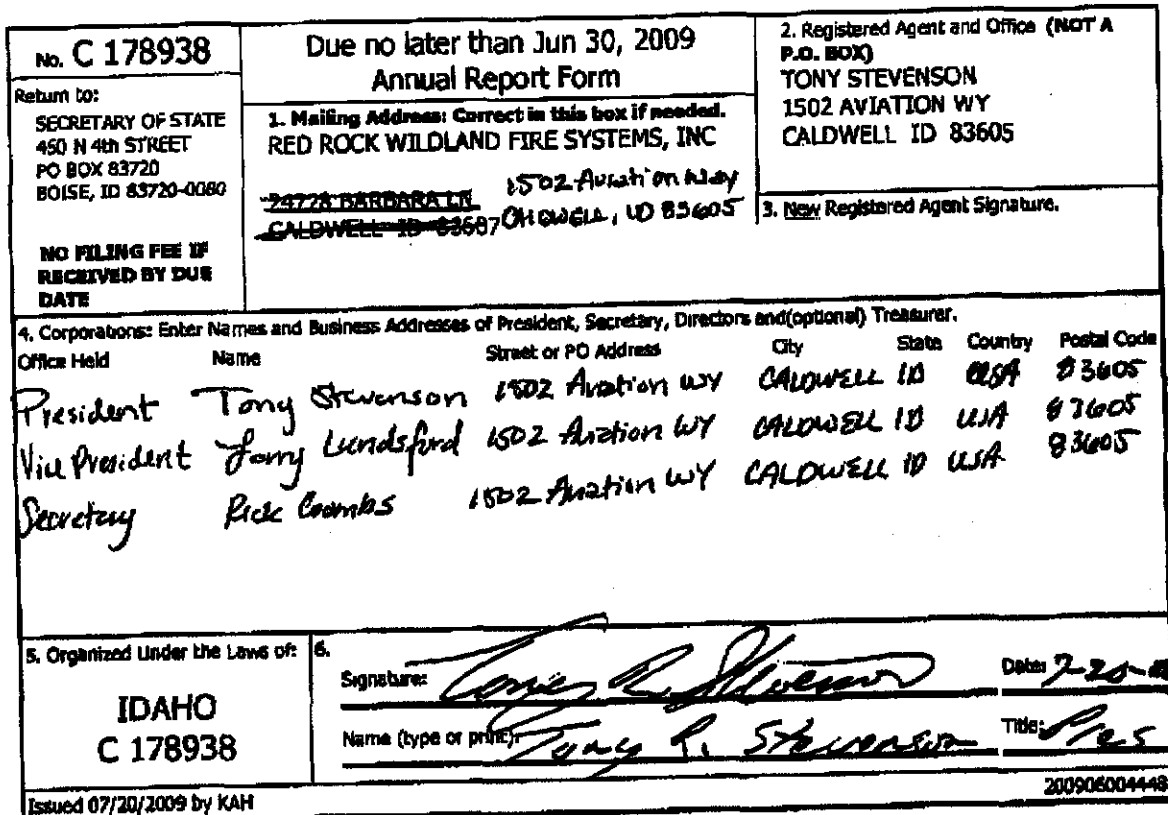 No. C 178938
Return to:
SECRETARY OF STATE
450 N 4th STREET
PO BOX 83720
BOISE, ID 83720-0080
NO FILING FEE IF
RECEIVED BY DUE
DATE
Due no later than Jun 30, 2009
Annual Report Form
1. Mailing Address: Correct in this box if needed.
RED ROCK WILDLAND FIRE SYSTEMS, INC
24728 BARBARA LN
CALDWELL ID 83607
1502 Aviation Way
CALDWELL, ID 83605
2. Registered Agent and Office (NOT A
P.O. BOX)
TONY STEVENSON
1502 AVIATION WY
CALDWELL ID 83605
3. New Registered Agent Signature.
4. Corporations: Enter Names and Business Addresses of President, Secretary, Directors and(optional) Treasurer.
Office Held Name Street or PO Address City State Country Postal Code
President Tony Stevenson 1502 Aviation WY CALDWELL ID USA 83605
Vice President Lundsford 1502 Aviation WY CALDWELL ID USA 83605
Secretary Rick Coombs 1502 Aviation WY CALDWELL ID USA 83605
5. Organized Under the Laws of:
IDAHO
C 178938
6.
Signature: Date: 7-20-
Name (type or print): Tony R. Stevenson Title: Pres
Issued 07/20/2009 by KAH
200906004448